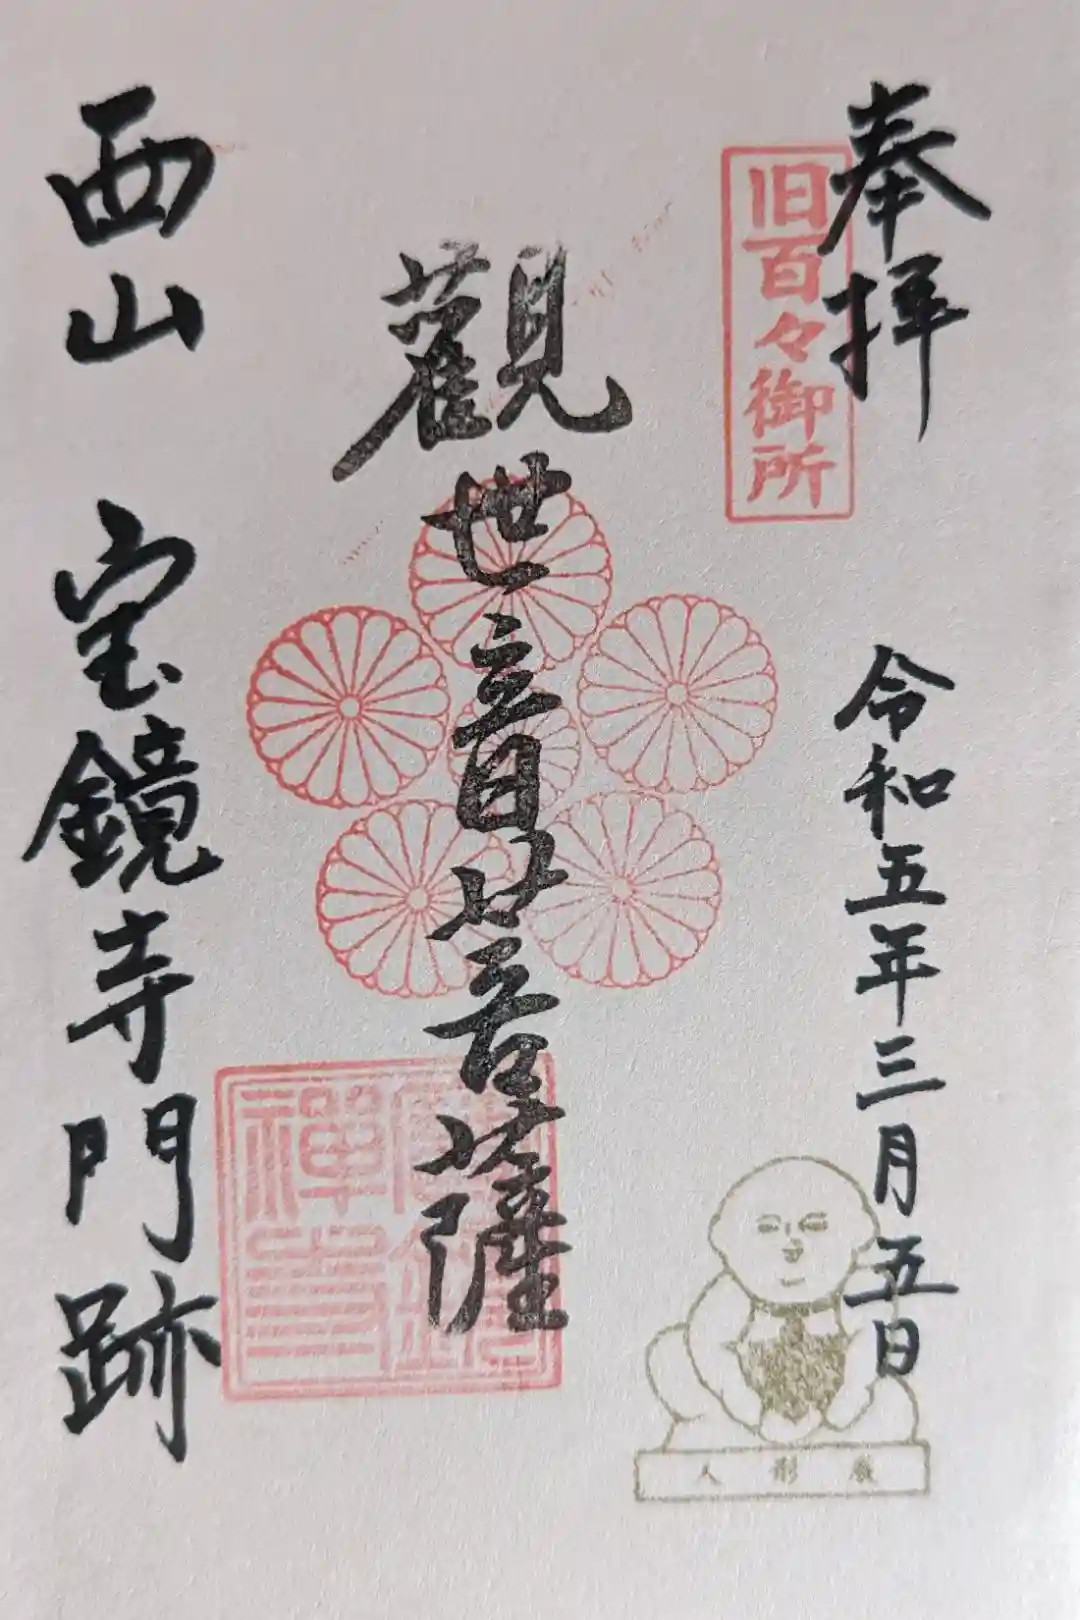 奉拝
旧百々御所
令和五年三月五日
觀世音菩薩
西山 宝鏡寺門跡
禅寺
人形